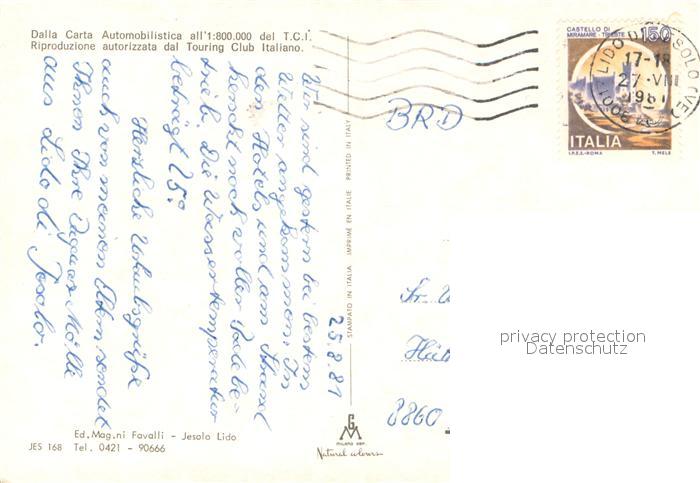 Dalla Carta Automobilistica all'1:800.000 del T.C.I.
Riproduzione autorizzata dal Touring Club Italiano.
25.8.81
Wir sind gestern bei bestem
Wetter angekommen. In
den Hotels und am Strand
herrscht noch voller Badebe-
trieb. Die Wassertemperatur
beträgt 25°
Herzliche Urlaubsgrüße
auch von meinen Eltern sendet
Ihnen Ihre Dagmar Mölle
aus Lido di Jesolo.
Ed. Mag.ni Favalli - Jesolo Lido
JES 168 Tel. 0421 - 90666
STAMPATO IN ITALIA IMPRIMÉ EN ITALIE PRINTED IN ITALY
MILANO
Natural colours
CASTELLO DI
MIRAMARE - TRIESTE
150
ITALIA
I.P.Z.S.-ROMA T. MELE
LIDO DI JESOLO (VE)
17-18
27 VIII
1981
BRD
Fr.
8860
privacy protection
Datenschutz